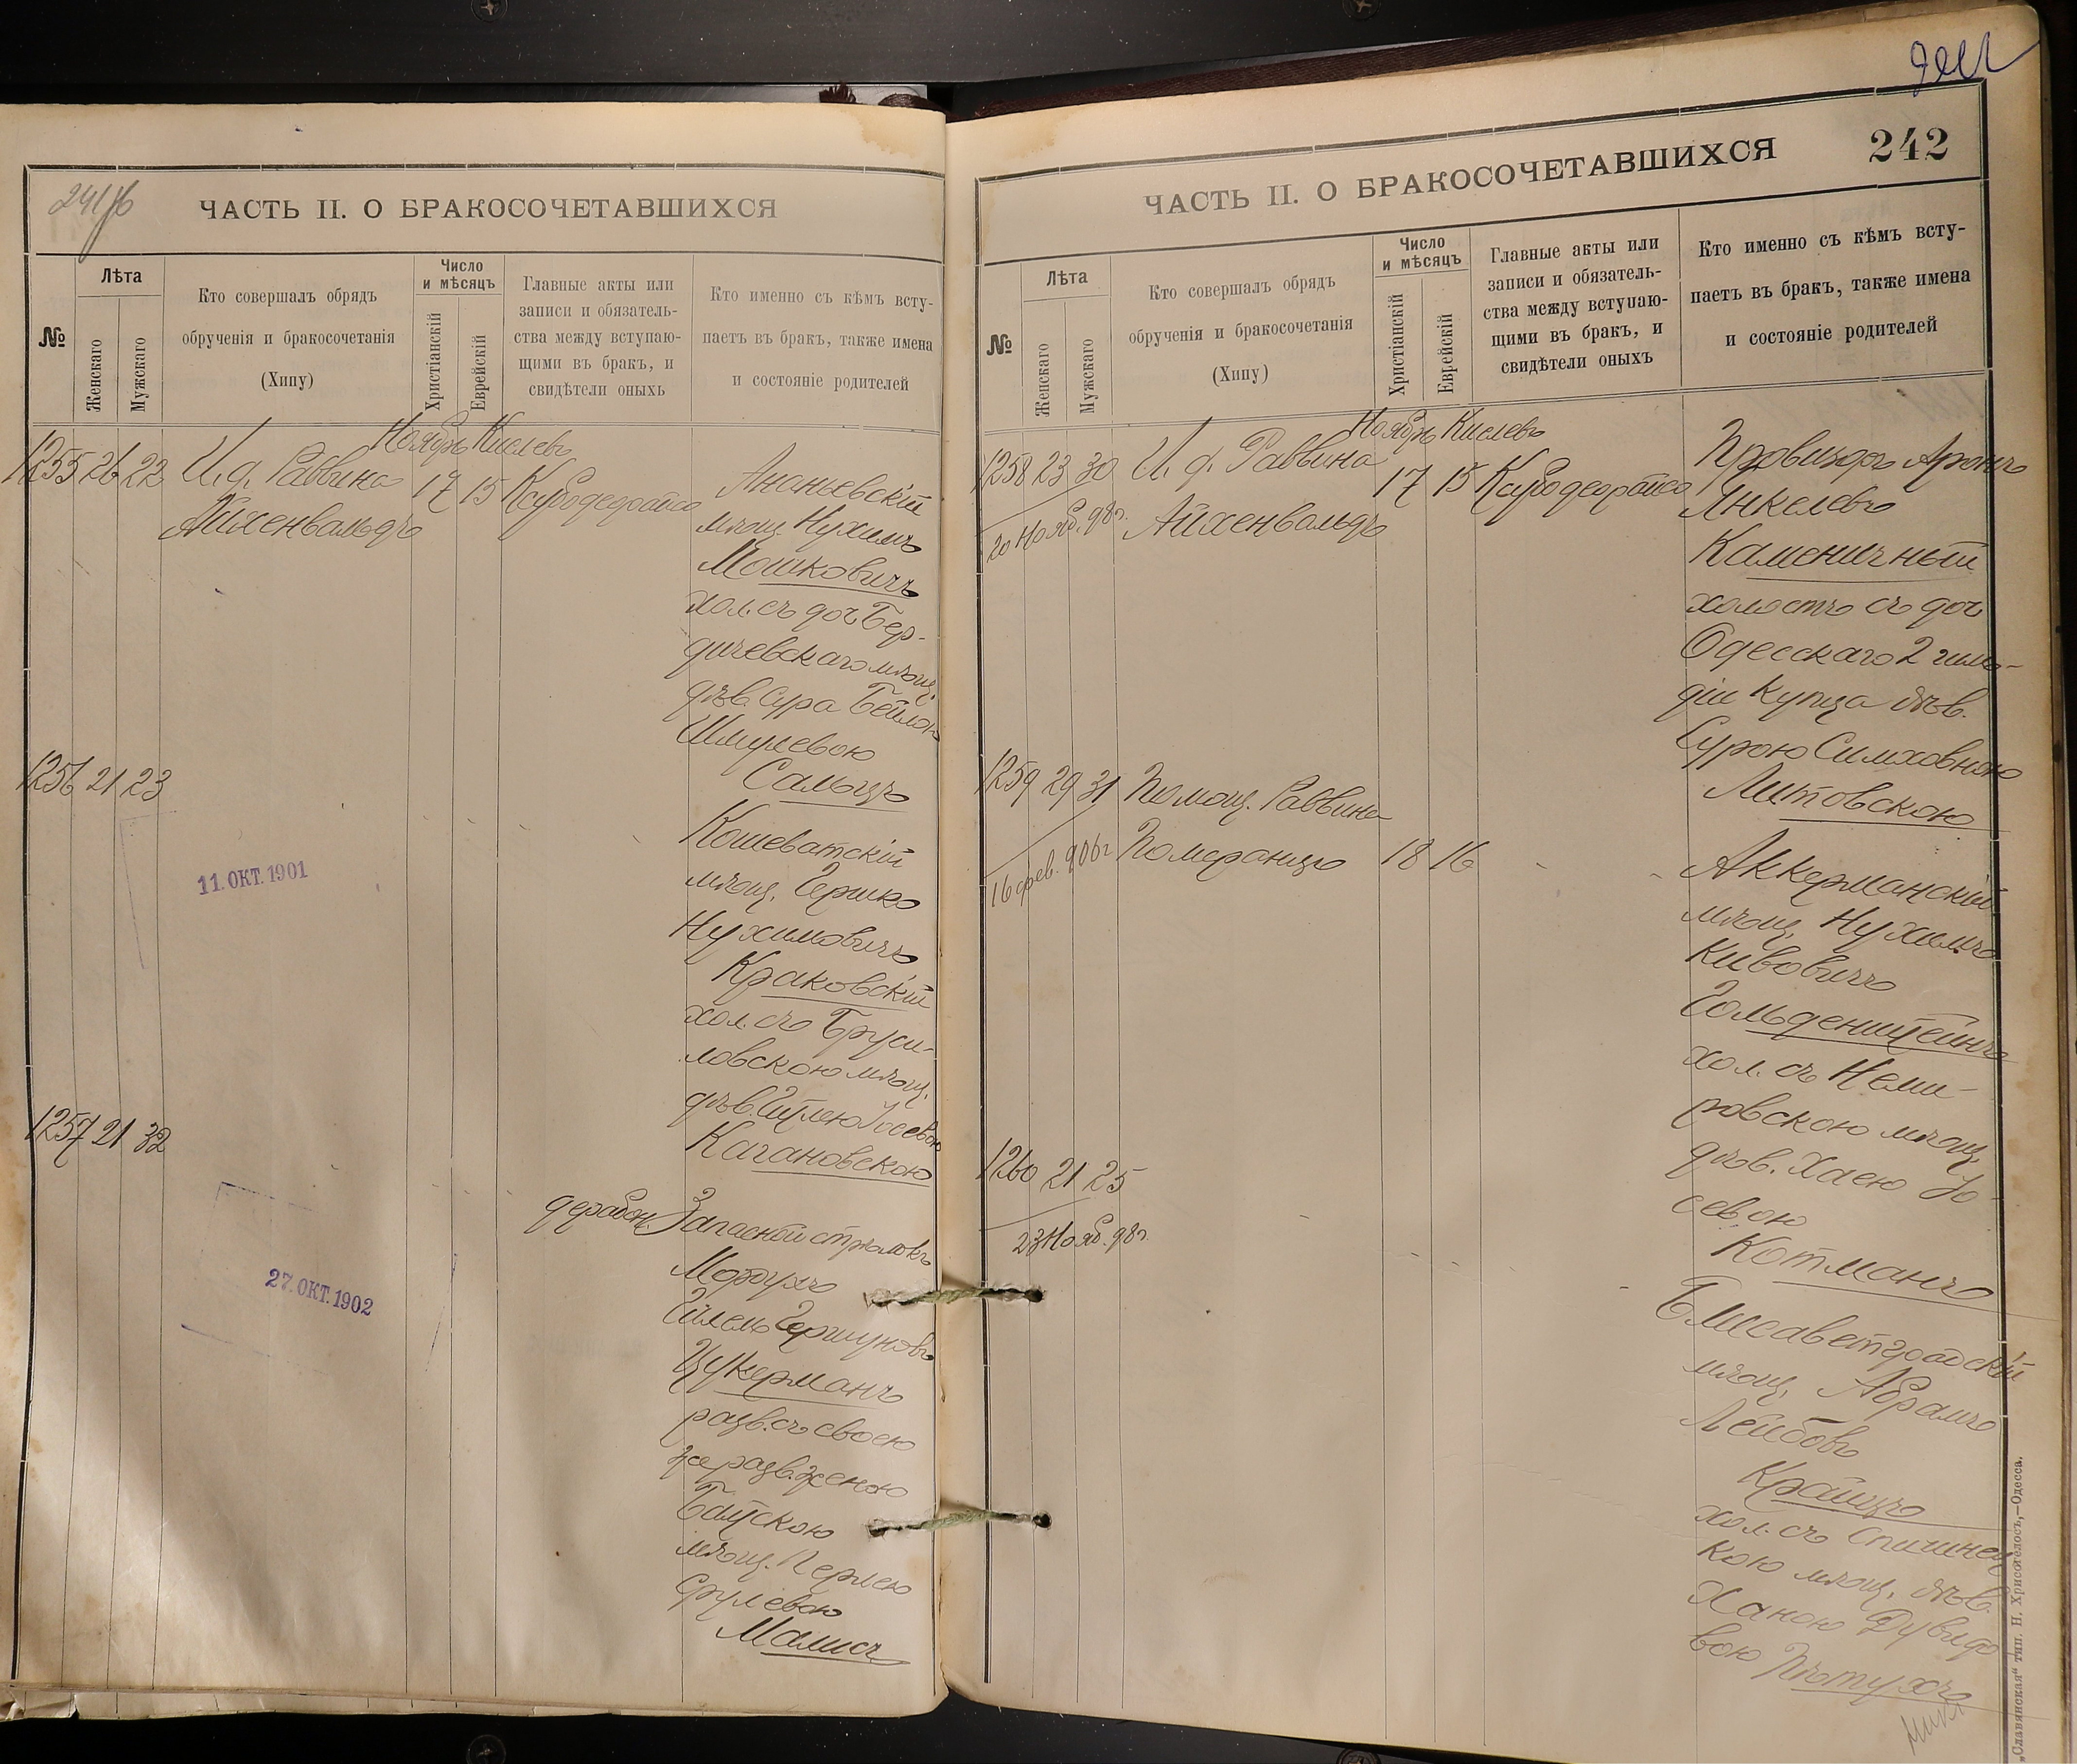 241/б
ЧАСТЬ II. О БРАКОСОЧЕТАВШИХСЯ
№
Лѣта
Женскаго
Мужскаго
Кто совершалъ обрядъ
обрученія и бракосочетанія
(Хипу)
Число
и мѣсяцъ
Христіанскій
Еврейскій
Главные акты или
записи и обязатель-
ства между вступаю-
щими въ бракъ, и
свидѣтели оныхъ
Кто именно съ кѣмъ всту-
паетъ въ бракъ, также имена
и состояніе родителей
Ноябрь Кислевъ
1255 26 22 И. д. Раввина 17 15
Айхенвальдъ
Ананьевскій
мѣщ. Нухимъ
Мошковичъ
хол. съ доч. Бер-
дичевскаго мѣщ.
дѣв. Сура Бейлою
Шмулевою
Сальцъ
1256 21 23
Кошеватскій
мѣщ. Гершко
Нухимовичъ
Краковскій
хол. съ Бруси-
ловскою мѣщ.
дѣв. Гитлею Іосевою
Кагановскою
11. ОКТ. 1901
1257 21 32
Запасной стрѣлокъ
Мордухъ
Гилель Гершуновъ
Цукерманъ
разв. съ своею
же разв. женою
Балтскою
мѣщ. Перлею
Срулевою
Малисъ
27. ОКТ. 1902
242
ЧАСТЬ II. О БРАКОСОЧЕТАВШИХСЯ
№
Лѣта
Женскаго
Мужскаго
Кто совершалъ обрядъ
обрученія и бракосочетанія
(Хипу)
Число
и мѣсяцъ
Христіанскій
Еврейскій
Главные акты или
записи и обязатель-
ства между вступаю-
щими въ бракъ, и
свидѣтели оныхъ
Кто именно съ кѣмъ всту-
паетъ въ бракъ, также имена
и состояніе родителей
Ноябрь Кислевъ
1258 23 30 И. д. Раввина 17 15
20 Нояб. 98г. Айхенвальдъ
Провизоръ Аронъ
Янкелевъ
Каменичный
холостъ съ доч
Одесскаго 2 гиль-
діи купца дѣв.
Сурою Симховною
Литовскою
1259 29 31 Помощ. Раввина
16 фев. 906г Померанцъ 18 16
Аккерманскій
мѣщ. Нухимъ
Кивовичъ
Гольденштейнъ
хол. съ Неми-
ровскою мѣщ.
дѣв. Хаею Іо-
севою
Котманъ
1260 21 25
23 Нояб. 98г.
Елисаветградскій
мѣщ. Абрамъ
Лейбовъ
Крайцъ
хол. съ Спичнец
кою мѣщ. дѣв.
Ханою Дувидо
вою Пѣтухъ
„Славянская“ тип. Н. Хрисогелосъ,—Одесса.